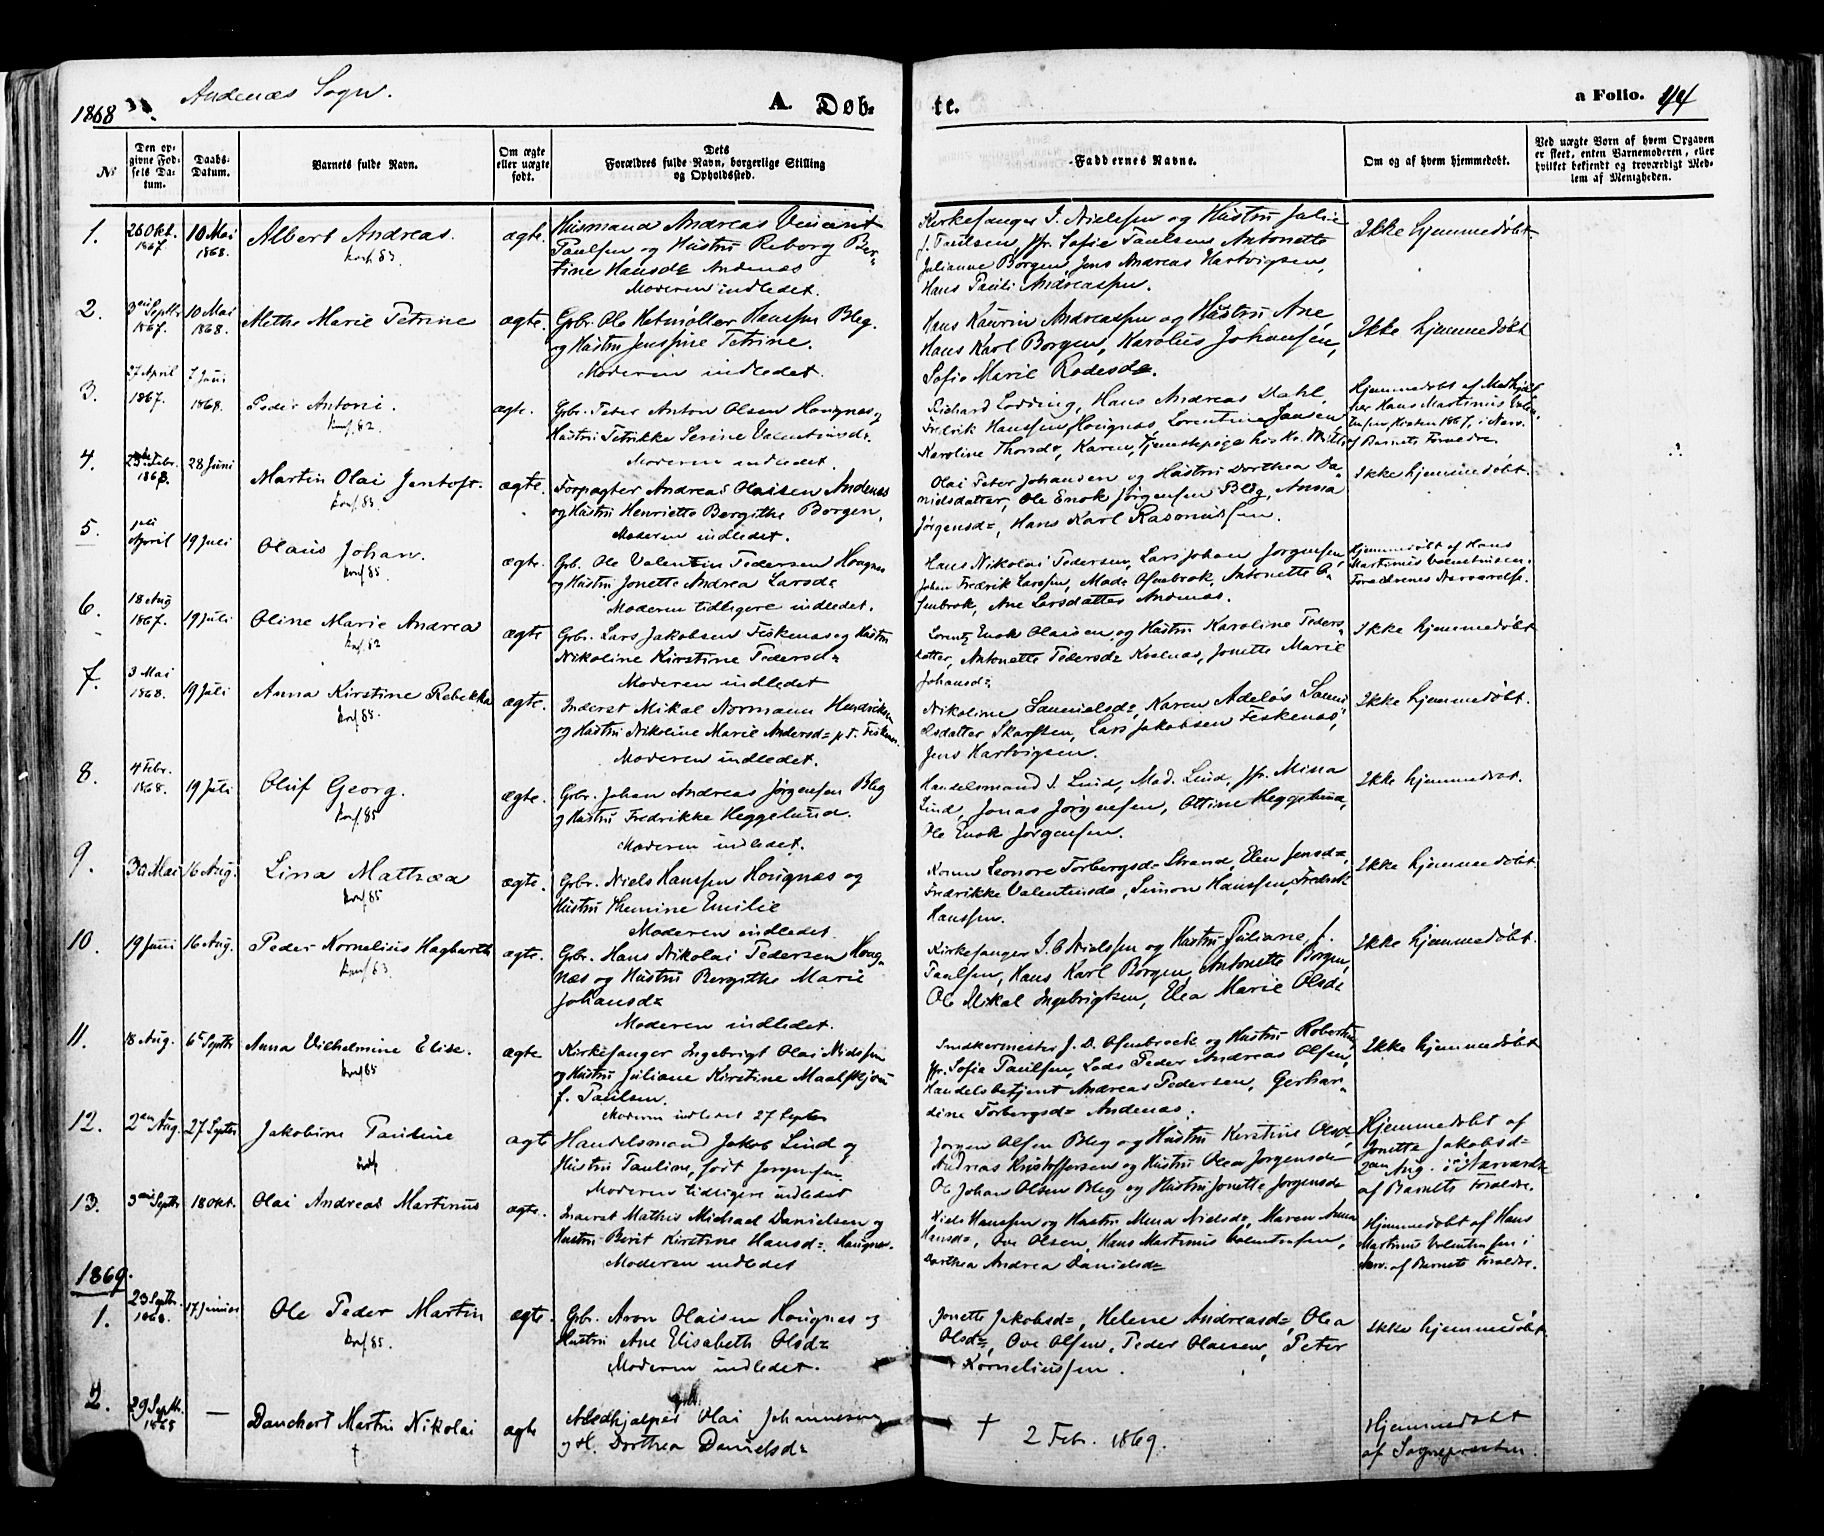 1868 Andenæs Sogn. A. Døb- te. a Folio. 44
No
Den opgivne Fødsels Datum.
Daabs-Datum.
Barnets fulde Navn.
Om ægte eller uægte født.
Dets Forældres fulde Navn, borgerlige Stilling og Opholdssted.
Faddernes Navne.
Om og af hvem hjemmedøbt.
Ved uægte Børn af hvem Opgaven er skeet, enten Barnemoderen, eller hvilket bekjendt og troværdigt Medlem af Menigheden.
1. 26 Okt. 1867. 10 Mai 1868. Albert Andreas. konf. 83 ægte.
Husmand Andreas Vincent
Paulsen og Hustru Reborg Ber-
tine Hansd= Andenæs
Moderen indledet.
Kirkesanger I. Nielssen og Hustru Julie
f. Paulsen, Jfr. Sofie Paulsen Antonette
Julianne Borgen, Jens Andreas Hartvigsen,
Hans Pauli Andreassen.
Ikke hjemmedøbt.
2. 3 Septbr 1867. 10 Mai 1868. Methe Marie Petrine ægte.
Grbr. Ole Hanssen Bleg.
og Hustru Jenssine Petrine.
Moderen indledet.
Hans Kaurin Andreassen og Hustru Ane,
Hans Karl Borgen, Karolius Johansen,
Sofie Marie Rodesd=.
Ikke hjemmedøbt
3. 27 April 1867. 7 Juni 1868. Peder Antoni. konf. 82. ægte.
Grbr. Peter Anton Olsen Hougnæs og
Hustru Petrikke Serine Valentinsd=
Moderen indledet.
Richard Lodding, Hans Andreas Dahl,
Fredrik Hanssen Hougnæs, Lorentine Jensen,
Karoline Thorsd=, Karen, Tjenestepige hos
Hjemmedøbt af
Hans Martinus
1867, i Nærv.
af Barnets Forældre.
4. Febr. 1868. 28 Juni Martin Olai Jentoft. konf. 83. ægte.
Forpagter Andreas Olaisen Andenæs
og Hustru Henriette Bergithe Borgen.
Moderen indledet.
Olai Peter Johansen og Hustru Dorthea Da-
nielsdatter, Ole Enok Jørgensen Bleg, Anna
Jørgensd=, Hans Karl Rasmussen.
Ikke hjemmedøbt.
5. April 19 Juli Olaus Johan. konf. 85. ægte.
Grb. Ole Valentin Pedersen Hougnæs
og Hustru Jonette Andrea Larsd=
Moderen tidligere indledet.
Hans Nikolai Pedersen, Lars Johan Jørgensen,
Johan Fredrik Larssen, Mads Ofenbrok, Antonette O-
fenbrok, Ane Larsdatter Andenæs.
Hjemmedøbt af Hans
Martinus Valentinsen
Forældrenes Nærværelse.
6. 18 Aug 1867. 19 Juli Oline Marie Andrea konf. 82 ægte
Grbr. Lars Jakobsen Fiskenæs og Hustru
Nikoline Kirstine Pedersd=
Moderen indledet
Lorentz Enok Olaisen og Hustru Karoline Peders-
datter, Antonette Pedersd=, Jonette Marie
Johansd=
Ikke hjemmedøbt
7. 3 Mai 1868. 19 Juli Anna Kirstine Rebekka konf 85. ægte.
Inderst Mikal Normann Hendriksen
og Hustru Nikoline Marie Andersd= p.t. Fiskenæs.
Moderen indledet.
Nikoline Samuelsd=, Karen Adelös Samu-
elsdatter, Lars Jakobsen Fiskenæs,
Jens Hartvigsen.
Ikke hjemmedøbt.
8. 4 Febr. 1868. 19 Juli Oluf Georg. konf 85 ægte.
Grbr. Johan Andreas Jørgensen Bleg
og Hustru Fredrikke Heggelund.
Moderen indledet.
Handelsmand J. Lind, Mad. Lind, Jfr. Mina
Lind, Jonas Jørgensen, Ottine Heggelund,
Ole Enok Jørgensen.
Ikke hjemmedøbt.
9. 30 Mai 16 Aug. Lina Mathæa konf 85 ægte.
Grbr. Niels Hanssen Hougnæs og
Hustru Themine Emilie
Moderen indledet.
Leonore Torbergsd= Strand, Elen Jensd=,
Fredrikke Valentinsd=, Simon Hanssen, Fredrik
Hanssen.
Ikke hjemmedøbt
10. 19 Juni 16 Aug. Peder Kornelius Hagbarth konf 83. ægte.
Grbr. Hans Nikolai Pedersen Houg-
næs og Hustru Bergithe Marie
Johansd=
Moderen indledet.
Kirkesanger I. O Nielssen og Hustru Juliane f.
Paulsen, Hans Karl Borgen, Antonette Borgen,
Ole Mikal Ingebrigtsen, Elea Marie Olsd=
Ikke hjemmedøbt.
11. 18 Aug. 6 Septbr Anna Vilhelmine Elise. konf 85 ægte
Kirkesanger Ingebrigt Olai Nielssen
og Hustru Juliane Kirstine Maalfrid
f. Paulsen.
Moderen indledet 27 Septbr
Snedkermester J. D. Ofenbrock og Hustru
Jfr. Sofie Paulsen, Lods Peder Andreas Olsen,
Handelsbetjent Andreas Pedersen, Gerhar-
dine Torbergsd= Andenæs.
Ikke hjemmedøbt
12. 2 Aug. 27 Septbr Jakobine Pauline ægte
Handelsmand Jakob Lind og
Hustru Pauline, født Jørgensen
Moderen tidligere indledet
Jørgen Olsen Bleg og Hustru Kerstine Olsd=,
Andreas Kristoffersen og Hustru Olea Jørgensd=
Ole Johan Olsen Bleg og Hustru Jonette Jørgensd=
Hjemmedøbt af
Jonetta Jakobsd=
Aug. i Nærværelse
af Barnets Forældre.
13. 3 Septbr 18 Okt. Olai Andreas Martinus ægte.
Inderst Mathis Michael Danielsen og
Hustru Berit Kirstine Hansd= Hougnæs.
Moderen indledet
Niels Hanssen og Hustru Mena Nielsd=, Maren Anna
Hansd=, Ove Olsen, Hans Martinus Valentinsen,
Dorthea Andrea Danielsd=
Hjemmedøbt af Hans
Martinus Valentinsen i
Nærv. af Barnets Forældre.
1869.
1. 23 Septbr. 1868. 17 Januar Ole Peder Martin konf 85. ægte.
Grbr. Aron Olaisen Hougnæs og
Hustru Ane Elisabeth Olsd=
Moderen indledet.
Jonette Jakobsd=, Helene Andreasd=, Olea
Olsd=, Ove Olsen, Peder Olaisen, Peter
Korneliussen.
Ikke hjemmedøbt
2. 29 Septb. 1868 — Danchert Martin Nikolai † ægte
Medhjælper Olai Johannessen
og H. Dorthea Danielsd=
† 2 Febr. 1869.
Hjemmedøbt
af Sognepræsten.